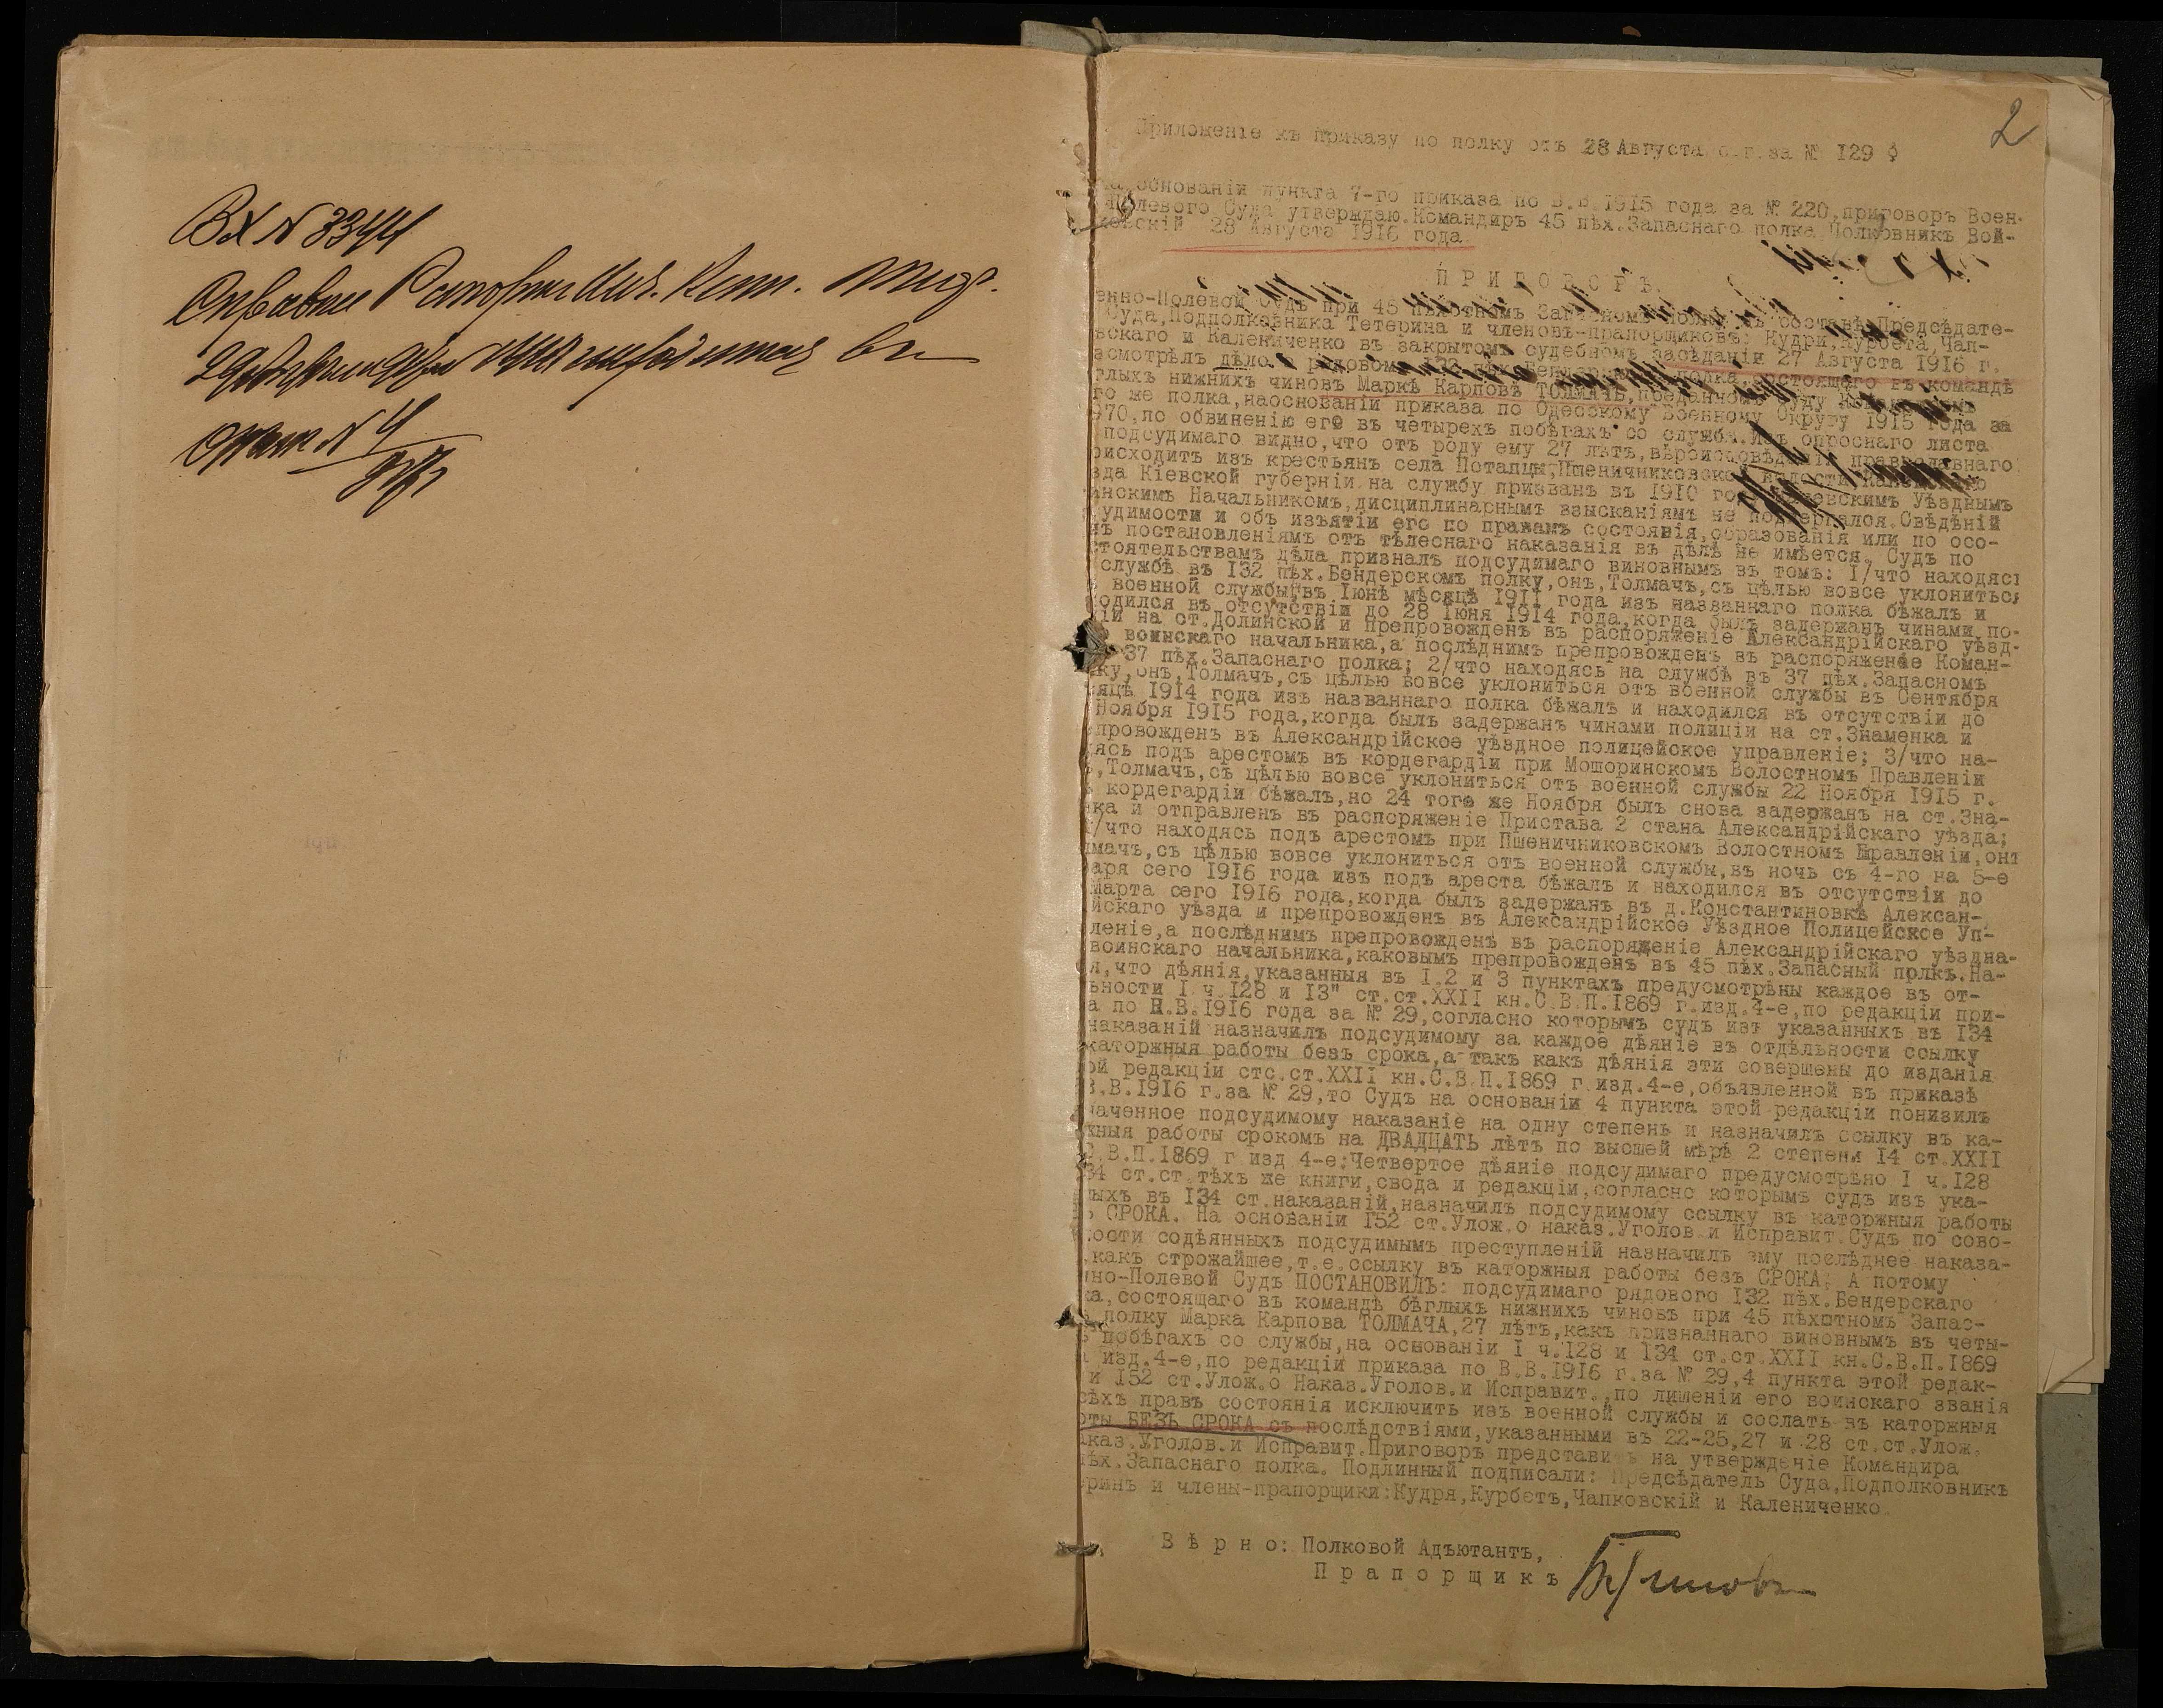 Вх N 3344
2
Приложеніе къ приказу по полку отъ 28 Августа с.г. за № 129
основаніи пункта 7-го приказа по В.В. 1915 года за № 220, приговоръ Воен-
Полевого Суда утверждаю. Командиръ 45 пѣх. Запаснаго полка Полковникъ Вой-
28 Августа 1916 года.
ПРИГОВОРЪ
енно-Полевой Судъ при 45 пѣхотномъ составѣ Предсѣдате-
Суда, Подполковника Тетерина и членовъ-прапорщиковъ: Кудри, Курбета, Чап-
вскаго и Калениченко въ закрытомъ судебномъ засѣданіи 27 Августа 1916 г.
зсмотрѣлъ дѣло о рядовомъ полка, состоящаго въ командѣ
глыхъ нижнихъ чиновъ Маркѣ Карповѣ ТОЛМАЧЪ, преданномъ суду
го же полка, наоснованіи приказа по Одесскому Военному Округу 1915 года за
970, по обвиненію его въ четырехъ побѣгахъ со службы. Изъ опроснаго листа
подсудимаго видно, что отъ роду ему 27 лѣтъ, вѣроисповѣданія православнаго
оисходитъ изъ крестьянъ села Потапцы, Пшеничниковской волости
зда Кіевской губерніи. на службу призванъ въ 1910 году Уѣзднымъ
инскимъ Начальникомъ, дисциплинарнымъ взысканіямъ не подвергался. Свѣдѣній
удимости и объ изъятіи его по правамъ состоянія, образованія или по осо-
ъ постановленіямъ отъ тѣлеснаго наказанія въ дѣлѣ не имѣется. Судъ по
стоятельствамъ дѣла призналъ подсудимаго виновнымъ въ томъ: 1/что находясь
службѣ въ 132 пѣх. Бендерскомъ полку, онъ, Толмачъ, съ цѣлью вовсе уклониться
военной службы, въ Іюнѣ мѣсяцѣ 1911 года изъ названнаго полка бѣжалъ и
одился въ отсутствіи до 28 Іюня 1914 года, когда былъ задержанъ чинами по-
ій на ст. Долинской и препровожденъ въ распоряженіе Александрійскаго уѣзд-
воинскаго начальника, а послѣднимъ препровожденъ въ распоряженіе Коман-
37 пѣх. Запаснаго полка; 2/что находясь на службѣ въ 37 пѣх. Запасномъ
ку, онъ, Толмачъ, съ цѣлью вовсе уклониться отъ военной службы въ Сентября
сяцѣ 1914 года изъ названнаго полка бѣжалъ и находился въ отсутствіи до
Ноября 1915 года, когда былъ задержанъ чинами полиціи на ст. Знаменка и
епровожденъ въ Александрійское уѣздное полицейское управленіе; 3/что на-
ясь подъ арестомъ въ кордегардіи при Мошоринскомъ Волостномъ Правленіи
ъ, Толмачъ, съ цѣлью вовсе уклониться отъ военной службы 22 Ноября 1915 г.
кордегардіи бѣжалъ, но 24 того же Ноября былъ снова задержанъ на ст. Зна-
нка и отправленъ въ распоряженіе Пристава 2 стана Александрійскаго уѣзда;
/что находясь подъ арестомъ при Пшеничниковскомъ Волостномъ Правленіи, онъ
лмачъ, съ цѣлью вовсе уклониться отъ военной службы, въ ночь съ 4-го на 5-е
аря сего 1916 года изъ подъ ареста бѣжалъ и находился въ отсутствіи до
Марта сего 1916 года, когда былъ задержанъ въ д. Константиновкѣ Алексан-
йскаго уѣзда и препровожденъ въ Александрійское Уѣздное Полицейское Уп-
леніе, а послѣднимъ препровожденъ въ распоряженіе Александрійскаго уѣздна-
воинскаго начальника, каковымъ препровожденъ въ 45 пѣх. Запасный полкъ. На-
я, что дѣянія, указанныя въ 1.2 и 3 пунктахъ предусмотрѣны каждое въ от-
ьности 1 ч. 128 и 13" ст.ст. XXII кн. С.В.П. 1869 г. изд. 4-е, по редакціи при-
а по В.В. 1916 года за № 29, согласно которымъ судъ изъ указанныхъ въ 134
наказаній назначилъ подсудимому за каждое дѣяніе въ отдѣльности ссылку
каторжныя работы безъ срока, а такъ какъ дѣянія эти совершены до изданія
ой редакціи стс.ст. XXII кн. С.В.П. 1869 г изд. 4-е, объявленной въ приказѣ
В.В. 1916 г. за № 29, то Судъ на основаніи 4 пункта этой редакціи понизилъ
наченное подсудимому наказаніе на одну степень и назначилъ ссылку въ ка-
жныя работы срокомъ на ДВАДЦАТЬ лѣтъ по высшей мѣрѣ 2 степени 14 ст. XXII
.В.П. 1869 г изд 4-е; Четвертое дѣяніе подсудимаго предусмотрѣно 1 ч. 128
34 ст.ст. тѣхъ же книги, свода и редакціи, согласно которымъ судъ изъ ука-
ныхъ въ 134 ст. наказаній, назначилъ подсудимому ссылку въ каторжныя работы
СРОКА. На основаніи 152 ст. Улож. о наказ. Уголов. и Исправит. Судъ по сово-
ости содѣянныхъ подсудимымъ преступленій назначилъ ему послѣднее наказа-
, какъ строжайшее, т.е. ссылку въ каторжныя работы безъ СРОКА; А потому
нно-Полевой Судъ ПОСТАНОВИЛЪ: подсудимаго рядового 132 пѣх. Бендерскаго
ка, состоящаго въ командѣ бѣглыхъ нижнихъ чиновъ при 45 пѣхотномъ Запас-
полку Марка Карпова ТОЛМАЧА, 27 лѣтъ, какъ признаннаго виновнымъ въ четы-
побѣгахъ со службы, на основаніи 1 ч. 128 и 134 ст.ст. XXII кн. С.В.П. 1869
изд. 4-е, по редакціи приказа по В.В. 1916 г. за № 29, 4 пункта этой редак-
и 152 ст. Улож. о Наказ. Уголов. и Исправит., по лишеніи его воинскаго званія
сѣхъ правъ состоянія исключить изъ военной службы и сослать въ каторжныя
оты БЕЗЪ СРОКА съ послѣдствіями, указанными въ 22-25, 27 и 28 ст.ст. Улож.
каз. Уголов. и Исправит. Приговоръ представить на утвержденіе Командира
пѣх. Запаснаго полка. Подлинный подписали: Предсѣдатель Суда, Подполковникъ
ринъ и члены-прапорщики: Кудря, Курбетъ, Чапковскій и Калениченко.
Вѣрно: Полковой Адъютантъ,
Прапорщикъ